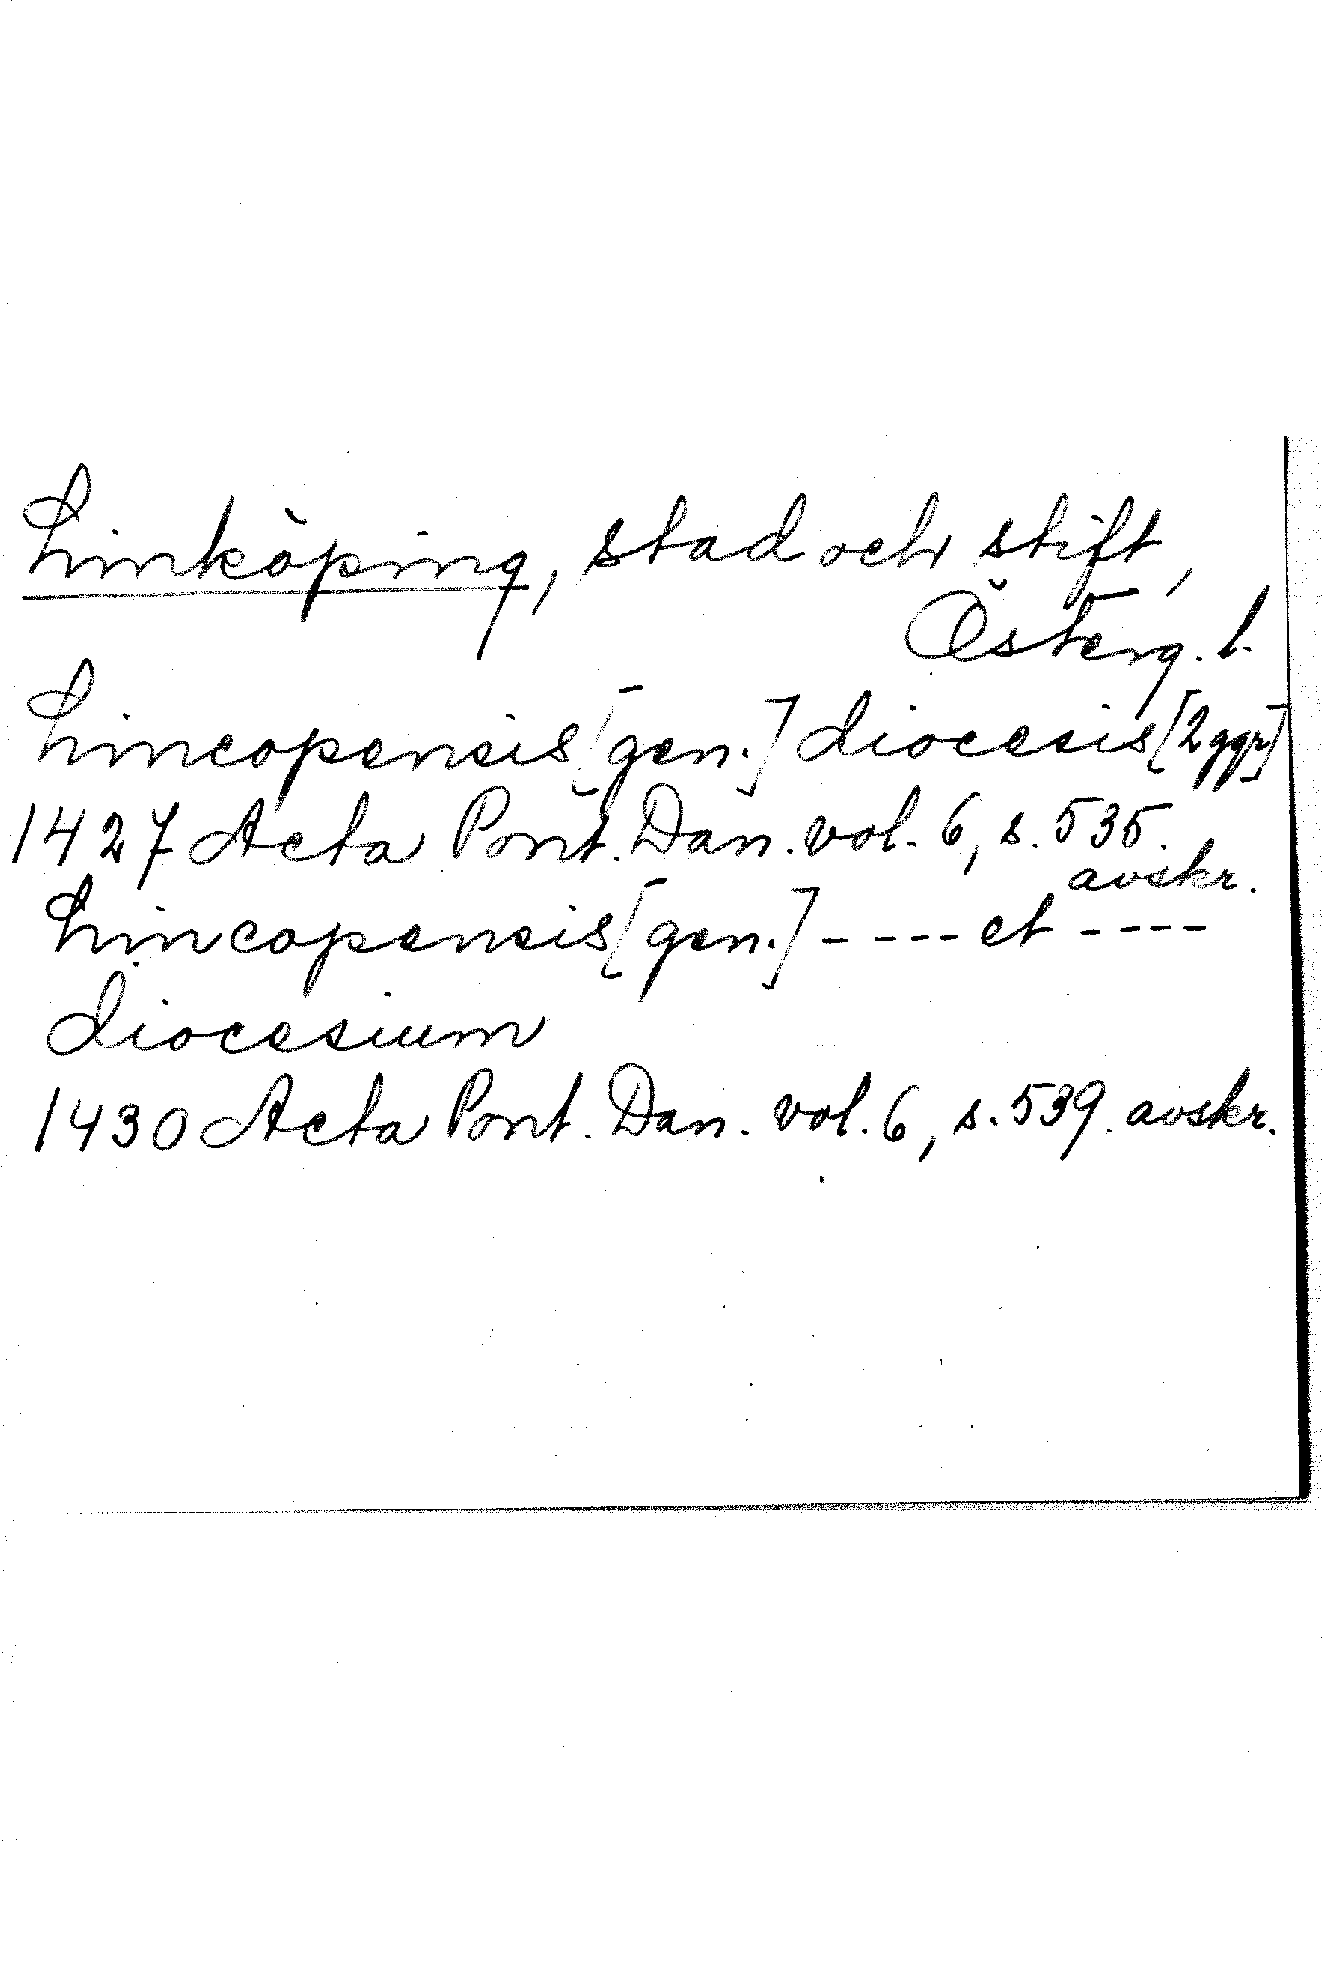 Linköping, stad och stift,
Österg. l.
Lincopensis [gen.] diocesis [2 ggr]
1427 Acta Pont. Dan. vol. 6, s. 535.
avskr.
Lincopensis [gen.] - ---- et ----
diocesium
1430 Acta Pont. Dan. vol. 6, s. 539. avskr.